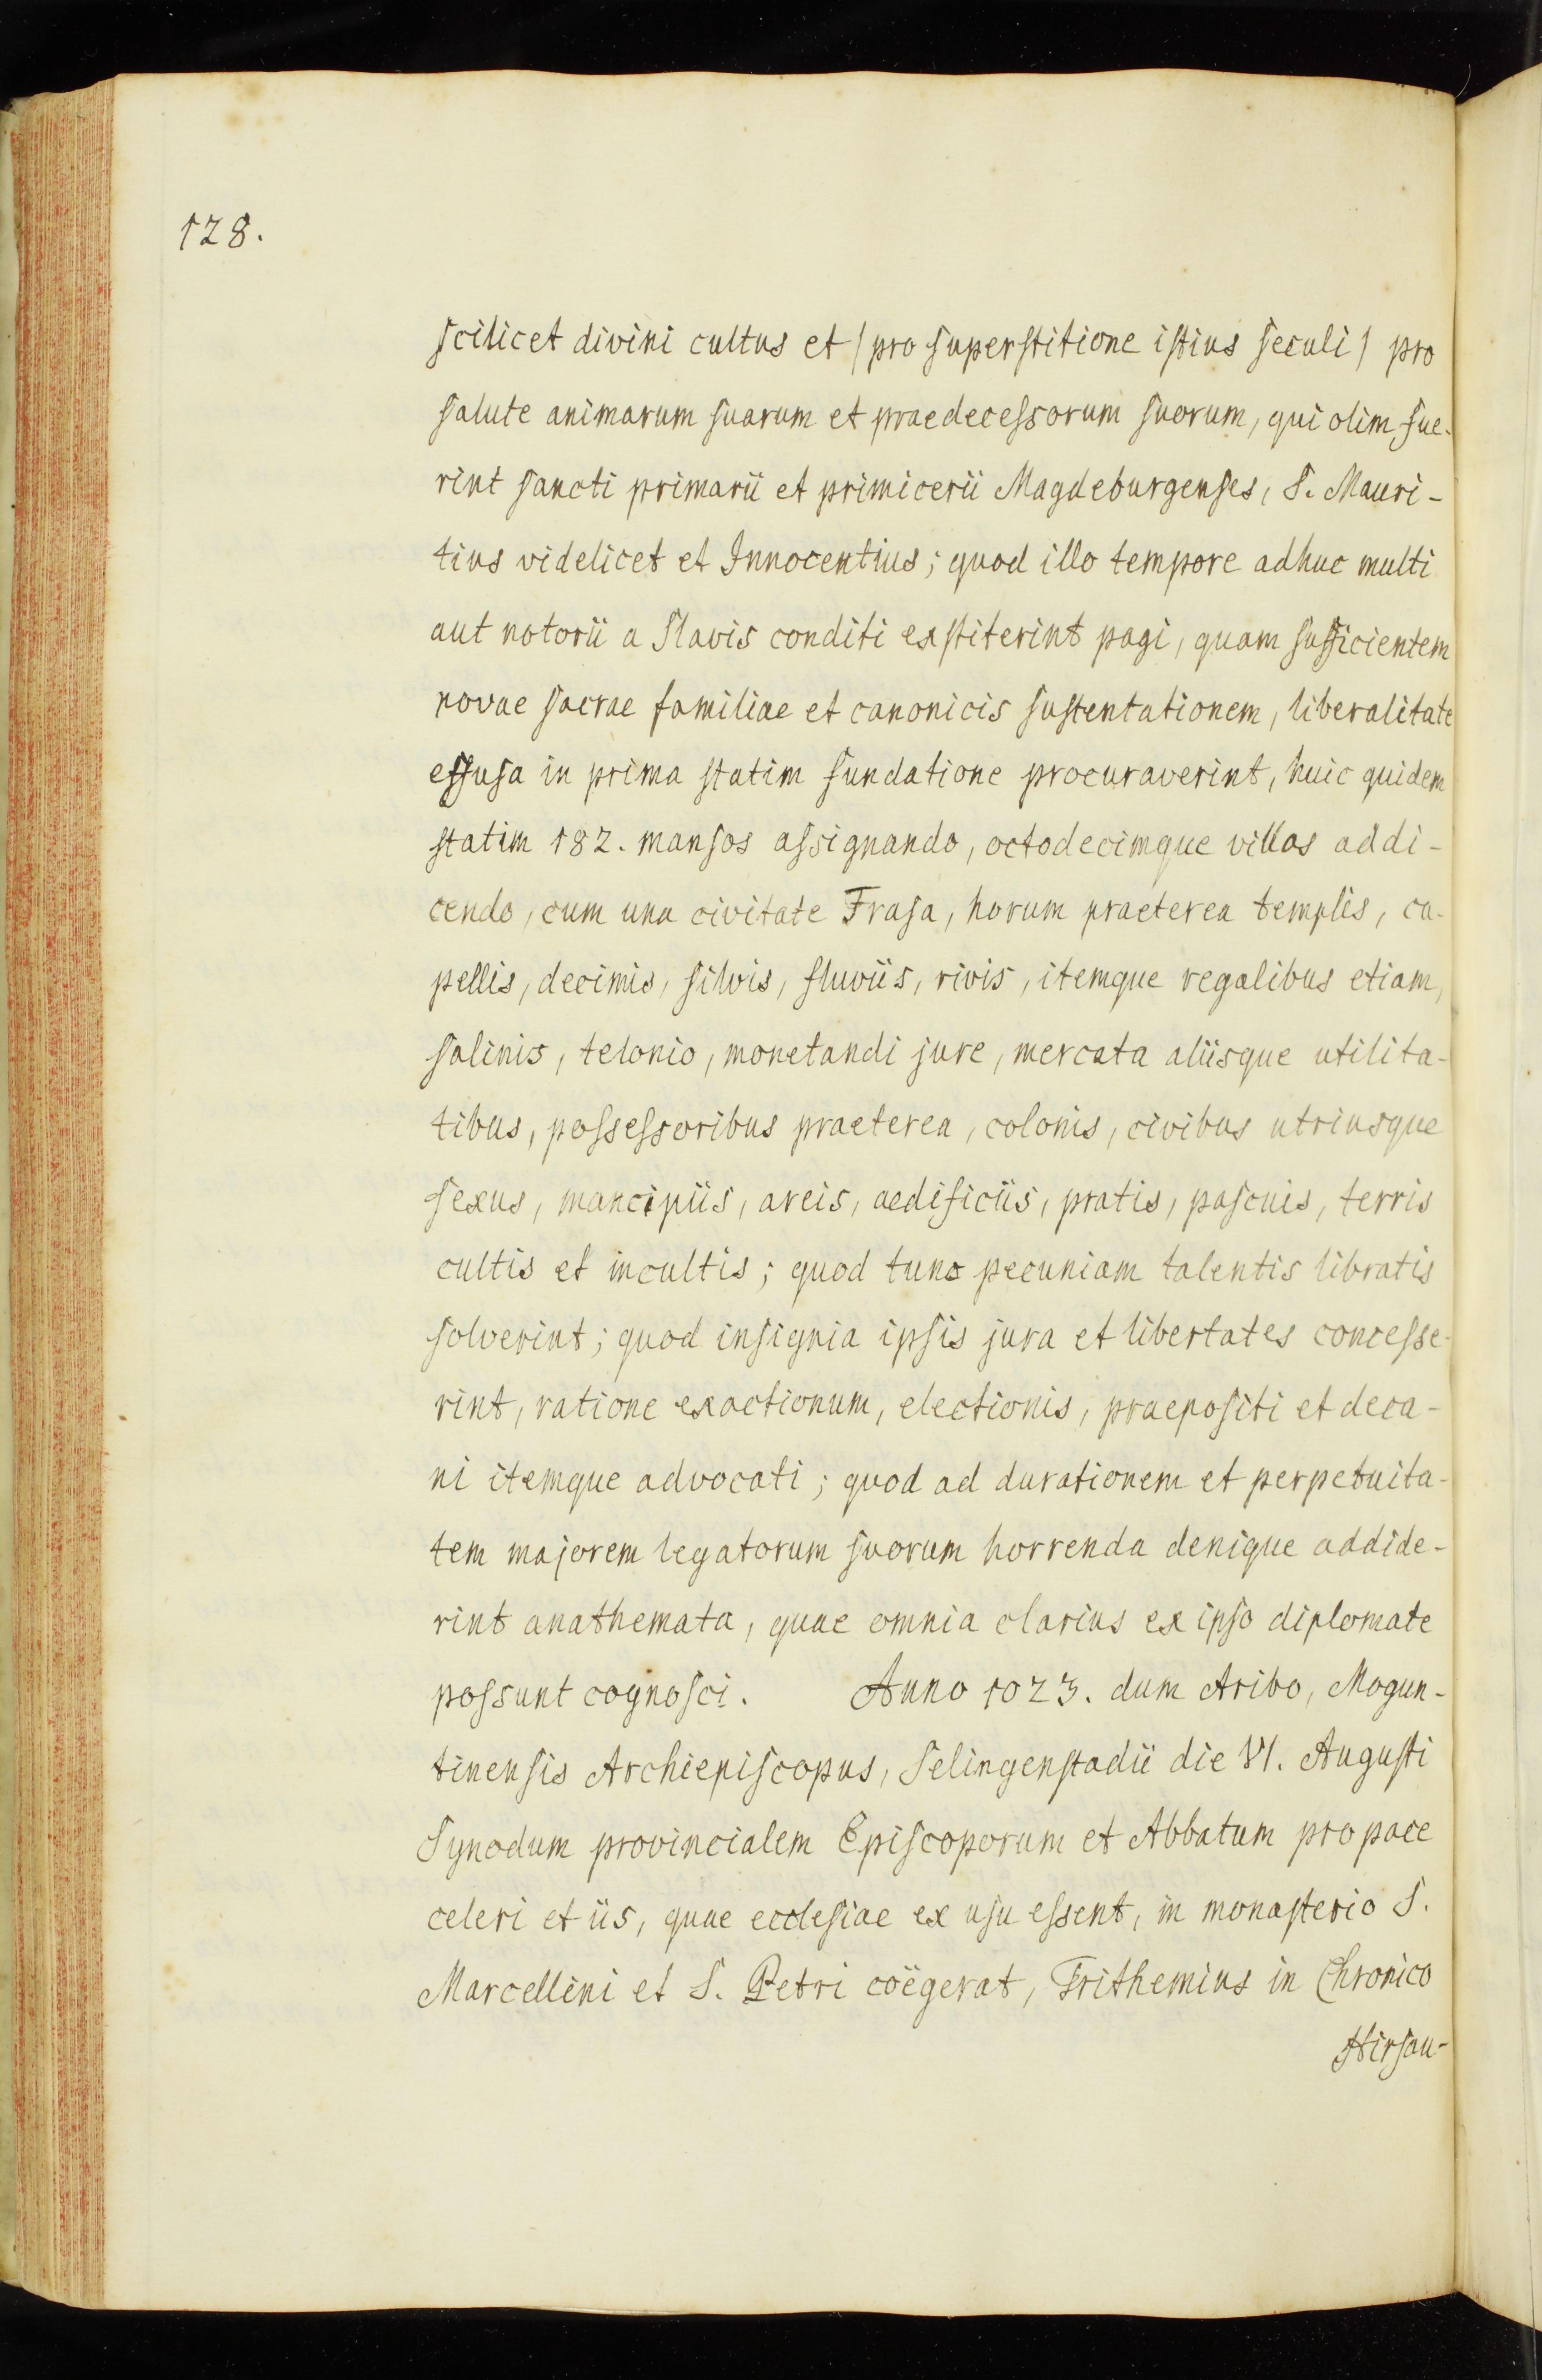 128.
scilicet divini cultus et (pro superstitione istius seculi) pro
salute animarum suarum et praedecessorum suorum, qui olim fue-
rint sancti primarii et primicerii Magdeburgenses, S. Mauri-
tius videlicet et Innocentius; quod illo tempore adhuc multi
aut notorii a Slavis conditi exstiterint pagi, quam sufficientem
novae sacrae familiae et canonicis sustentationem, liberalitate
effusa in prima statim fundatione procuraverint, huic quidem
statim 182. mansos assignando, octodecimque villas addi-
cendo, cum una civitate Frasa, horum praeterea templis, ca-
pellis, decimis, silvis, fluviis, rivis, itemque regalibus etiam,
salinis, telonio, monetandi jure, mercata aliisque utilita-
tibus, possessoribus praeterea, colonis, civibus utriusque
sexus, mancipiis, areis, aedificiis, pratis, pascuis, terris
cultis et incultis; quod tunc pecuniam talentis libratis
solverint; quod insignia ipsis jura et libertates concesse-
rint, ratione exactionum, electionis, praepositi et deca-
ni itemque advocati; quod ad durationem et perpetuita-
tem majorem legatorum suorum horrenda denique addide-
rint anathemata, quae omnia clarius ex ipso diplomate
possunt cognosci. Anno 1023. dum Aribo, Mogun-
tinensis Archiepiscopus, Selingenstadii die VI. Augusti
Synodum provincialem Episcoporum et Abbatum pro pace
celeri et iis, quae ecclesiae ex usu essent, in monasterio S.
Marcellini et S. Petri coëgerat, Trithemius in Chronico
Hirsau-